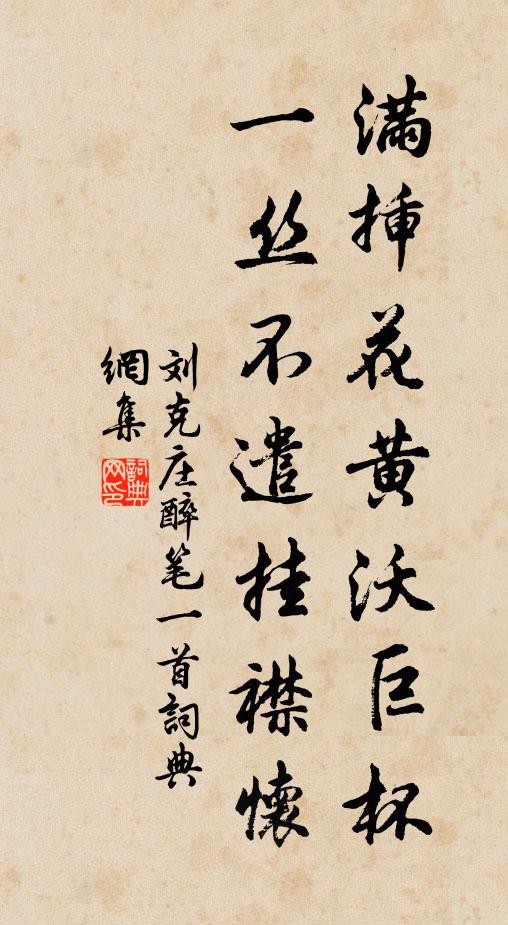 满插花黄沃巨杯
一丝不遣挂襟懷
刘克庄醉笔一首詞典
網集
詞典网印